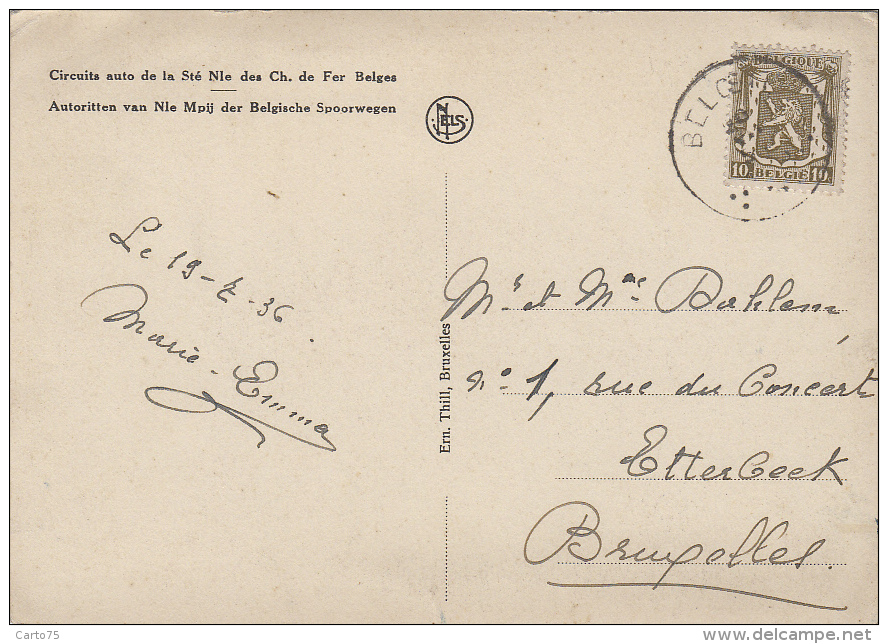 Circuits auto de la Sté Nle des Ch. de Fer Belges
Autoritten van Nle Mpij der Belgische Spoorwegen
NELS
BELGIQUE
10 BELGIË 10
BELG
Le 19-7-36
Marie-Emma
Ern. Thill, Bruxelles
Mr et Mme Dahlem
no 1, rue du Concert
Etterbeek
Bruxelles.
Carto75
www.delcampe.net